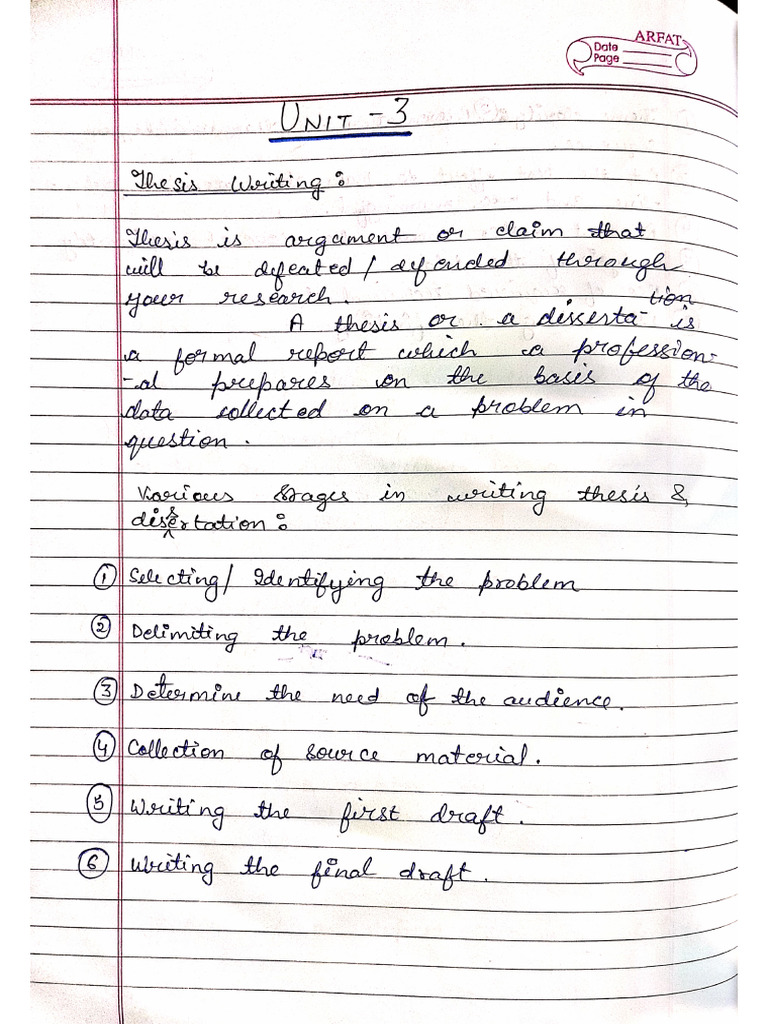 ARFAT
Date
Page
UNIT - 3
Thesis Writing :
Thesis is argament or claim that
will be defeated / defended through
your research.
A thesis or a disserta-tion is
a formal report which a profession-
-al prepares on the basis of the
data collected on a problem in
question.
Various stages in writing thesis &
dissertation :
① Selecting / Identifying the problem
② Delimiting the problem.
③ Determine the need of the audience.
④ Collection of source material.
⑤ Writing the first draft.
⑥ Writing the final draft.